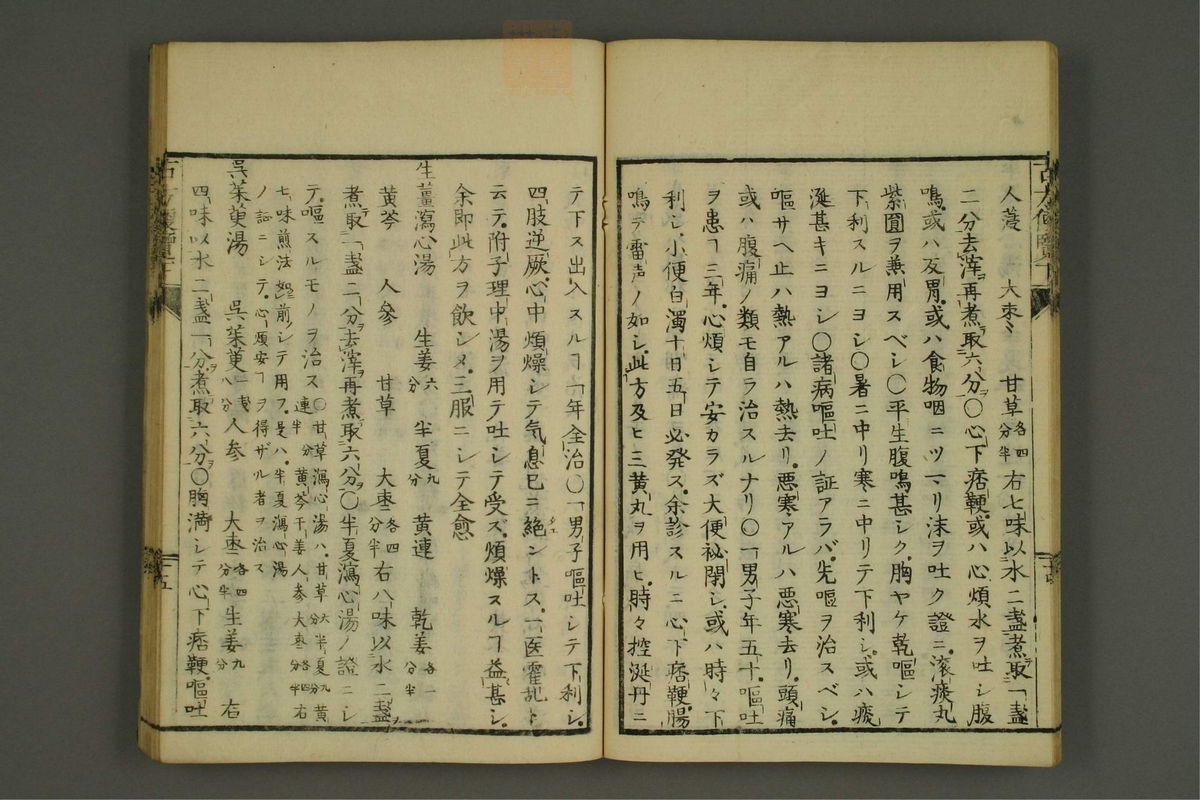 人葠 大枣 甘草各四分半右七味以水二盞煮取テ一盞
二分去滓ヲ再煮取ル六分ヲ〇心下痞鞕或ハ心煩水ヲ吐シ腹
鳴或ハ反胃或ハ食物咽ニツマリ沫ヲ吐ク證ニ滚痰丸
紫圓ヲ兼用スベシ〇平生腹鳴甚シク胸ヤケ乾嘔シテ
下利スルニヨシ〇暑ニ中リ寒ニ中リテ下利シ或ハ痰
涎甚キニヨシ〇諸病嘔吐ノ証アラバ先嘔ヲ治スベシ
嘔サヘ止ハ熱アルハ熱去リ悪寒アルハ悪寒去リ頭痛
或ハ腹痛ノ類モ自ラ治スルナリ〇一男子年五十嘔吐
ヲ患ヿ三年心煩シテ安カラズ大便祕閉シ或ハ時々下
利シ小便白濁十日五日必発ス余診スルニ心下痞鞕腸
鳴テ雷声ノ如シ此方及ヒ三黄丸ヲ用ヒ時々控涎丹ニ
テ下ス出入スルヿ一年全治〇一男子嘔吐シテ下利シ
四肢逆厥心中煩燥シテ気息已ニ絶ントス一医霍乱ト
云テ附子理中湯ヲ用テ吐シテ受ズ煩燥スルヿ益甚シ
余即此方ヲ飲シメ三服ニシテ全愈
生薑瀉心湯 生姜六分 半夏九分 黄連 乾姜各一分半
黄芩 人參 甘草 大枣各四分半右八味以水二盞
煮取テ一盞二分ヲ去滓ヲ再煮取ル六分ヲ〇半夏瀉心湯ノ證ニシ
テ嘔スルモノヲ治ス〇甘草瀉心湯ハ甘草六分半夏九分黄連半分黄芩干姜人参大枣各四分半右
七味煎法如前シテ用フ是ハ半夏瀉心湯
ノ証ニシテ心煩安ヿヲ得ザル者ヲ治ス
呉茱萸湯 呉茱萸一戋八分人参 大枣各四分半生姜九分 右
四味以水二盞一分煮取ル六分ヲ〇胸満シテ心下痞鞕嘔吐